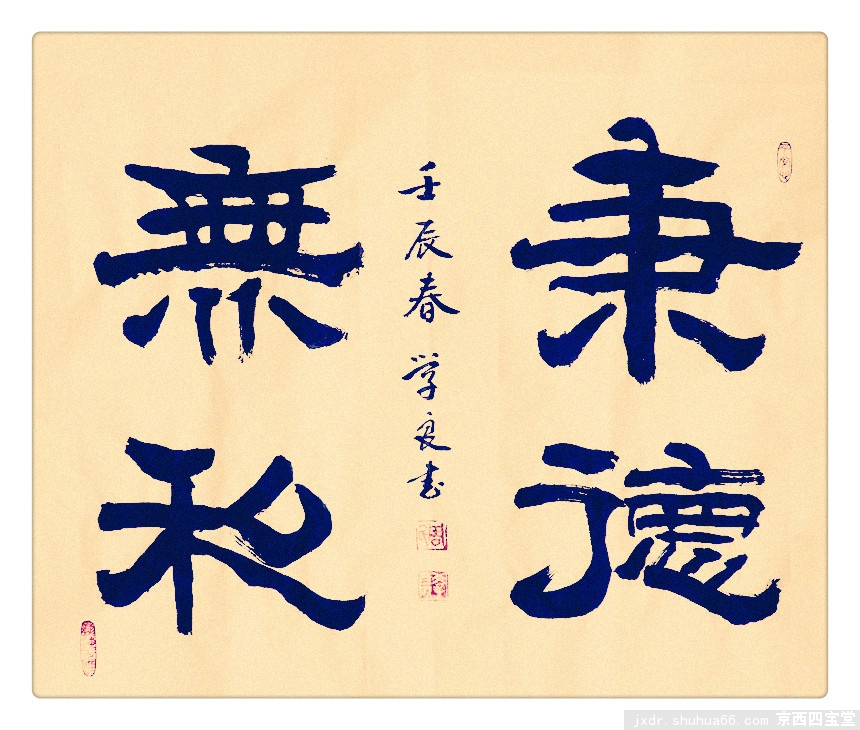 秉德
無私
壬辰春 学良书
jxdr.shuhua66.com 京西四宝堂